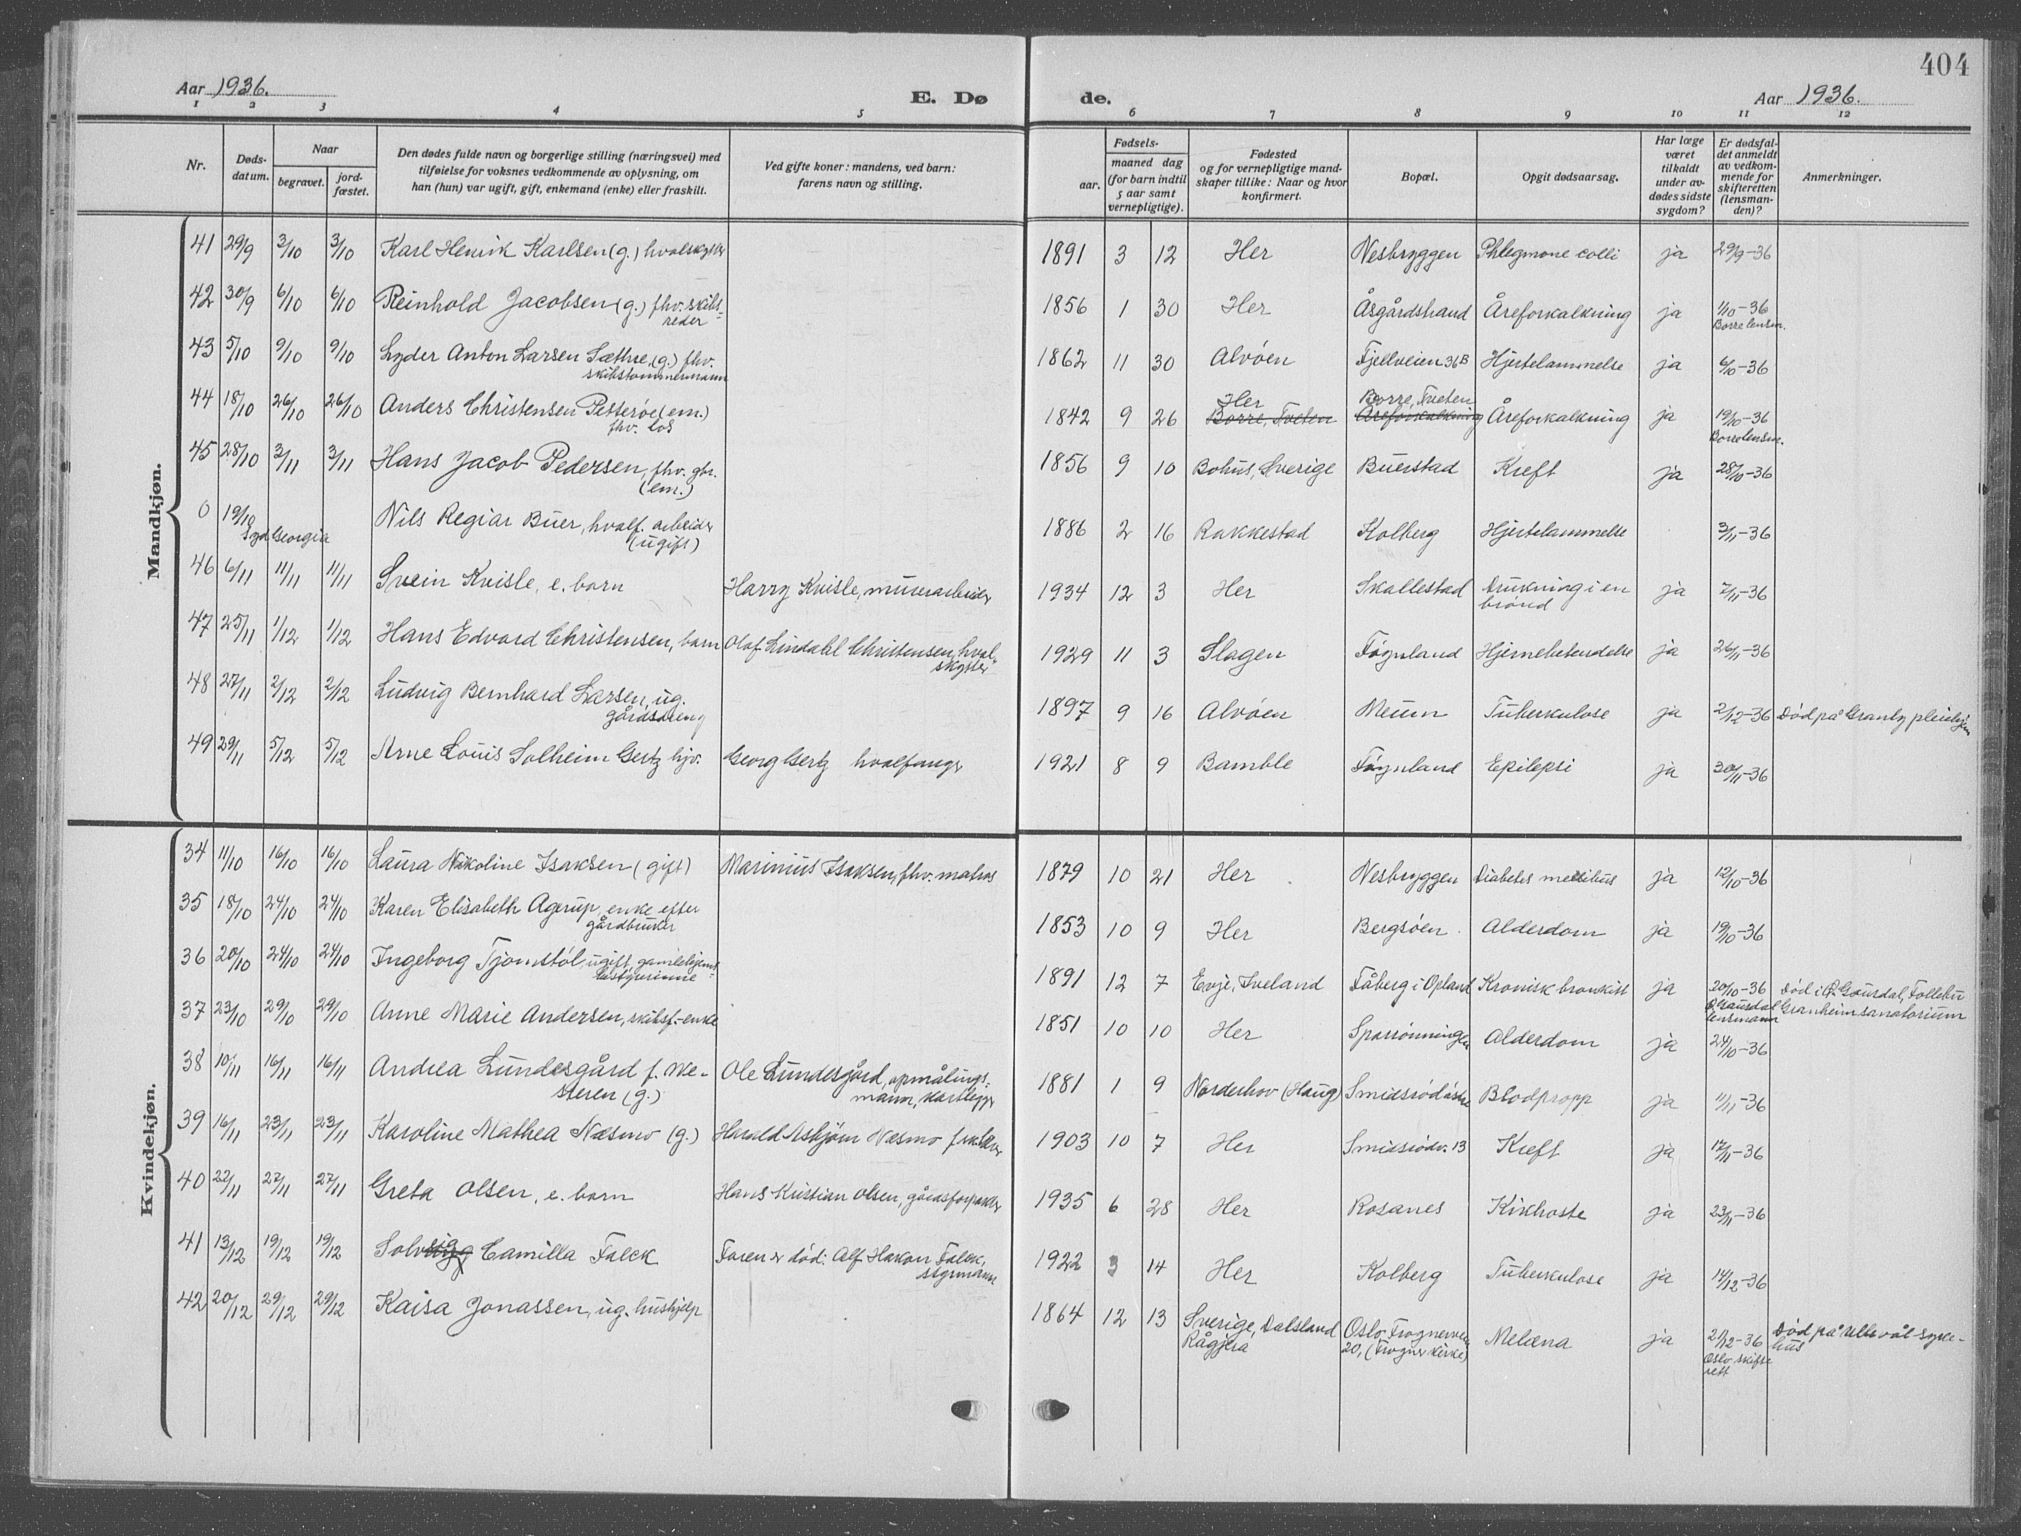 404
Aar 1936.
E. Dø
de.
Aar 1936.
1 2 3 4 5 6 7 8 9 10 11 12
Nr.
Døds-
datum.
Naar
begravet.
jord-
fæstet.
Den dødes fulde navn og borgerlige stilling (næringsvei) med
tilføielse for voksnes vedkommende av oplysning, om
han (hun) var ugift, gift, enkemand (enke) eller fraskilt.
Ved gifte koner: mandens, ved barn:
farens navn og stilling.
Fødsels-
aar.
maaned dag
(for barn indtil
5 aar samt
vernepligtige).
Fødested
og for vernepligtige mand-
skaper tillike: Naar og hvor
konfirmert.
Bopæl.
Opgit dødsaarsag.
Har læge
været
tilkaldt
under av-
dødes sidste
sygdom?
Er dødsfal-
det anmeldt
av vedkom-
mende for
skifteretten
(lensman-
den)?
Anmerkninger.
Mandkjøn.
41 29/9 3/10 3/10 Karl Henrik Karlsen (g.) hvalskytter 1891 3 12 Her Nesbryggen Phlegmone colli ja 29/9-36
42 30/9 6/10 6/10 Reinhold Jacobsen (g.) fhv. skibs-
reder 1856 1 30 Her Åsgårdstrand Åreforkalkning ja 1/10-36
Borre lensm.
43 5/10 9/10 9/10 Lyder Anton Larsen Sæthre (g.) fhv.
skibstømmermann 1862 11 30 Alvøen Fjellveien 36B Hjertelammelse ja 6/10-36
44 18/10 26/10 26/10 Anders Christensen Petterøe (em.)
fhv. los 1842 9 26 Her Borre, Tveten Borre, Tveten Åreforkalkning Åreforkalkning ja 19/10-36
Borre lensm.
45 28/10 3/11 3/11 Hans Jacob Pedersen, fhv. gbr.
(em.) 1856 9 10 Bohus, Sverige Buerstad Kreft ja 28/10-36
0 19/10 Syd Georgia Nils Regiar Buer, hvalf. arbeider
(ugift) 1886 2 16 Rakkestad Kolberg Hjertelammelse 3/11-36
46 6/11 11/11 11/11 Svein Kvisle, e. barn Harry Kvisle, murerarbeider 1934 12 3 Her Skallestad Drukning i en
brønd ja 7/11-36
47 25/11 1/12 1/12 Hans Edvard Christensen, barn Olaf Lindahl Christensen, hval-
skytter 1929 11 3 Slagen Føynland Hjernebetendelse ja 26/11-36
48 27/11 2/12 2/12 Ludvig Bernhard Larsen, ug.
gårdsdreng 1897 9 16 Alvøen Meum Tuberkulose ja 2/12-36 Død på Granly pleiehjem
49 29/11 5/12 5/12 Arne Louis Solheim Gertz hjv. Georg Gertz hvalfanger 1921 8 9 Bamble Føynland Epilepsi ja 30/11-36
Kvindekjøn.
34 11/10 16/10 16/10 Laura Nikoline Isaksen (gift) Marinius Isaksen, fhv. matros 1879 10 21 Her Nesbryggen Diabetes mellitus ja 12/10-36
35 18/10 24/10 24/10 Karen Elisabeth Agerup, enke efter
gårdbruker 1853 10 9 Her Bergsøen Alderdom ja 19/10-36
36 20/10 24/10 24/10 Ingeborg Tjomstøl, ugift, gamlehjems-
bestyrerinne 1891 12 7 Evje, Iveland Fåberg i Opland Kronisk bronkitt ja 20/10-36
Ø. Gausdal
lensmann Død i Ø. Gausdal, Follebu
Granheim sanatorium
37 23/10 29/10 29/10 Anne Marie Andersen, skibsf.-enke 1851 10 10 Her Sparrønningen Alderdom ja 24/10-36
38 10/11 16/11 16/11 Andrea Lundesgård f. We-
steren (g.) Ole Lundesgård, opmålings-
mann, kartlegger 1881 1 9 Norderhov (Haug) Smidsrødåsne Blodpropp ja 11/11-36
39 16/11 23/11 23/11 Karoline Mathea Næsmo (g.) Harald Asbjørn Næsmo 1903 10 7 Her Smidsrødv. 13 Kreft ja 17/11-36
40 22/11 27/11 27/11 Greta Olsen, e. barn Hans Kristian Olsen, gårdsforpakter 1935 6 28 Her Rosanes Kikhoste ja 23/11-36
41 13/12 19/12 19/12 Solveig Camilla Falck Faren er død: Alf Hakon Falck,
styrmann 1922 3 14 Her Kolberg Tuberkulose ja 14/12-36
42 20/12 29/12 29/12 Kaisa Jonassen, ug. hushjelp 1864 12 13 Sverige, Dalsland
Rågjera Oslo, Frognerveien
20, (Frogner kirke) Melæna ja 21/12-36
Oslo skifte
rett Død på Ullevål syke-
hus